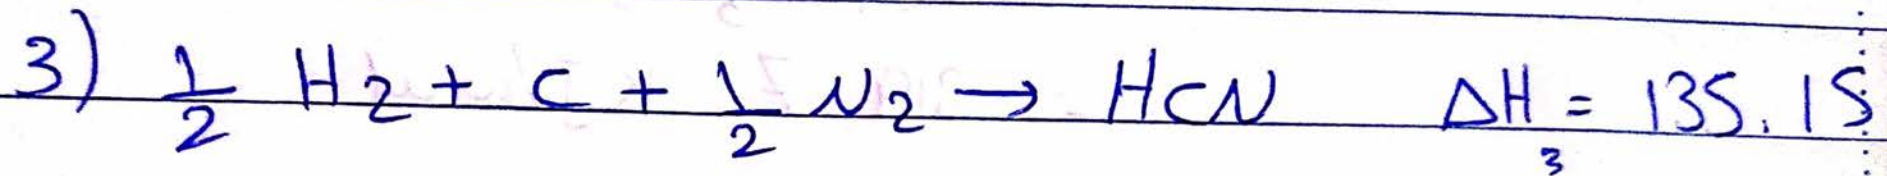 3) 1/2 H2 + C + 1/2 N2 → HCN ΔH3 = 135.15